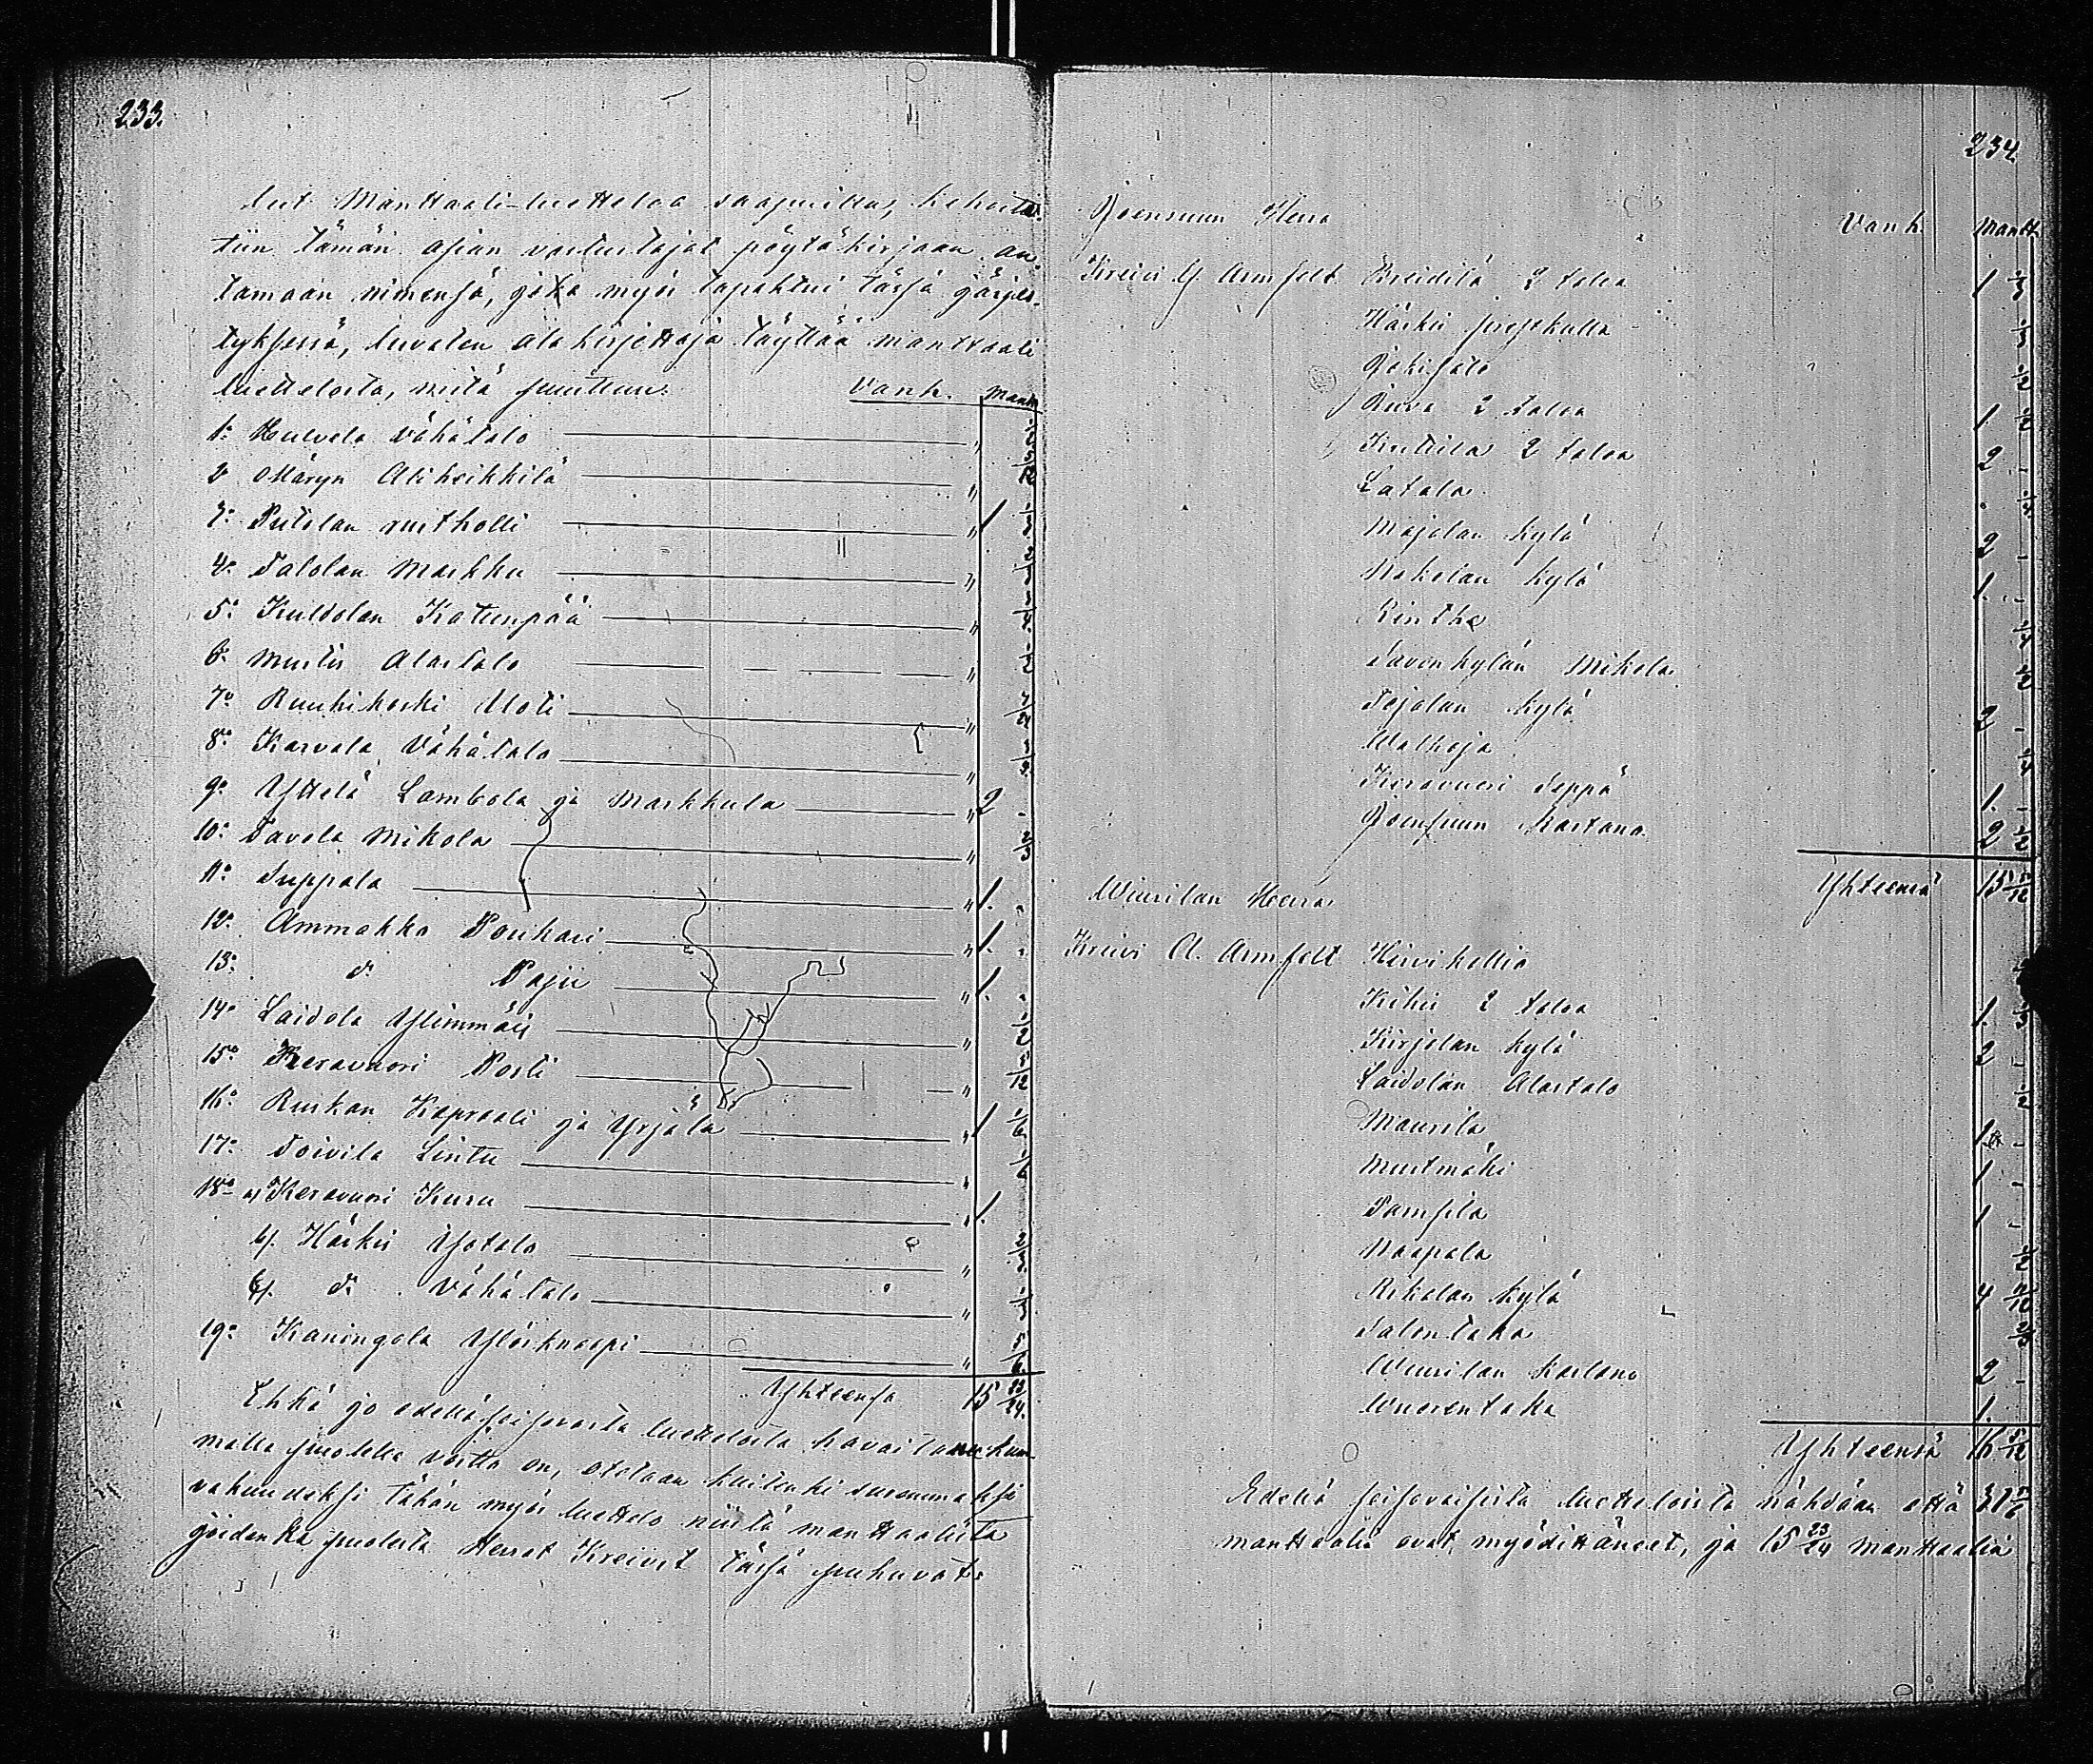 233.
lut Manttaali-luetteloa saapuilla, kehoitet-
tiin tämän asian vastustajat pöytäkirjaan an-
tamaan nimensä, joka myös tapahtui tässä järjes-
tyksessä, luvaten allekirjottaja täyttää manttaali
luettelosta, mitä puuttuu.
Vanh. Mantt.
1:o Hulvela Vähätalo " 
2:o Märyn Aliheikkilä "
3:o Putolan rustholli " 1
4:o Talolan Markku "
5:o Kuldolan Katunpää "
6:o Mustis Alastalo "
7:o Ruuhikoski Uoti "
8:o Karvala Vähätalo "
9:o Yttelä Lambola ja Markkula " 2 -
10:o Tavola Mikola "
11:o Suppala " 1. "
12:o Ammakko Pouhari " 1. "
13:o d:o Pajii " 1. "
14:o Laidola Ylimmäis "
15:o Keravuori Posti " 5/12
16:o Ruskan Kapraali ja Yrjälä " 1 1/6
17:o Toivila Lintu "
18:o a) Keravuori Kuru " 1.
b). Härkis Ysotalo "
c). d:o Vähätalo "
19:o Kaningola Ylisknaapi " 5/6
Yhteensä 15 23/24.
Ehkä jo edelläseisovasta luettelosta havaitaan kum-
malla puolella voitto on, otetaan kuitenki suuremmaksi
vakuudeksi tähän myös luettelo niistä manttaalista
joidenka puolesta Herrat Kreivit tässä puhuvat.
234.
Joensuun Herra Vanh. Mantt.
Kreivi G Armfelt Breidilä 2 taloa 1
Härkis prestkulla
Jokisalo
Ruva 2 taloa 1
Kuttila 2 taloa 2 -
Latala
Majolan kylä 2 -
Nokolan kylä 1. -
Rinthe
Tavonkylän Mikola
Tojolan kylä 2 -
Walhoja
Keravuori Seppä 1. -
Joensuun Kartano 2
Yhteensä 15
Wiurilan Herra
Kreivi A. Armfelt Hirvikallio
Kihis 2 taloa 1.
Kirjolan kylä 2 -
Laidolan Alastalo
Maurila 1. -
Mustmäki 1 -
Pamfila 1 -
Naapala
Rikalan kylä 4
Talontaka
Wiurilan kartano 2 -
Wuorentaka 1.
Yhteensä 16 5/12
Edellä seisovaisista luetteloista nähdään että 31 5/6
manttaalia ovat myödittäneet, ja 15 23/24 manttaalia